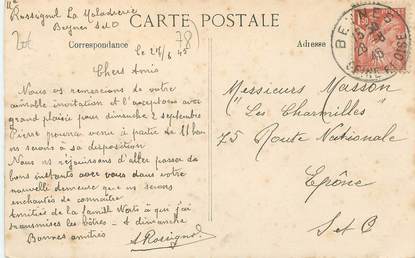 Rossignol La Maladrerie
Beynes S et O
CARTE POSTALE
78
Correspondance
Adresse
le 28/8 45
Chers Amis
Nous vous remercions de votre
aimable invitation et l'acceptons avec
grand plaisir pour dimanche 2 septembre
Pierre pourra venir à partir de 11 h nous
serons à sa disposition
Nous nous réjouissons d'aller passer de
bons instants avec vous dans votre
nouvelle demeure que nous serons
enchantés de connaître
Amitiés de la famille à qui j'ai
transmises les vôtres - A dimanche
Bonnes amitiés
A Rossignol
Messieurs Masson
"Les Charmilles"
75 Route Nationale
Epône
S et O
BEYNES
SEINE ET OISE